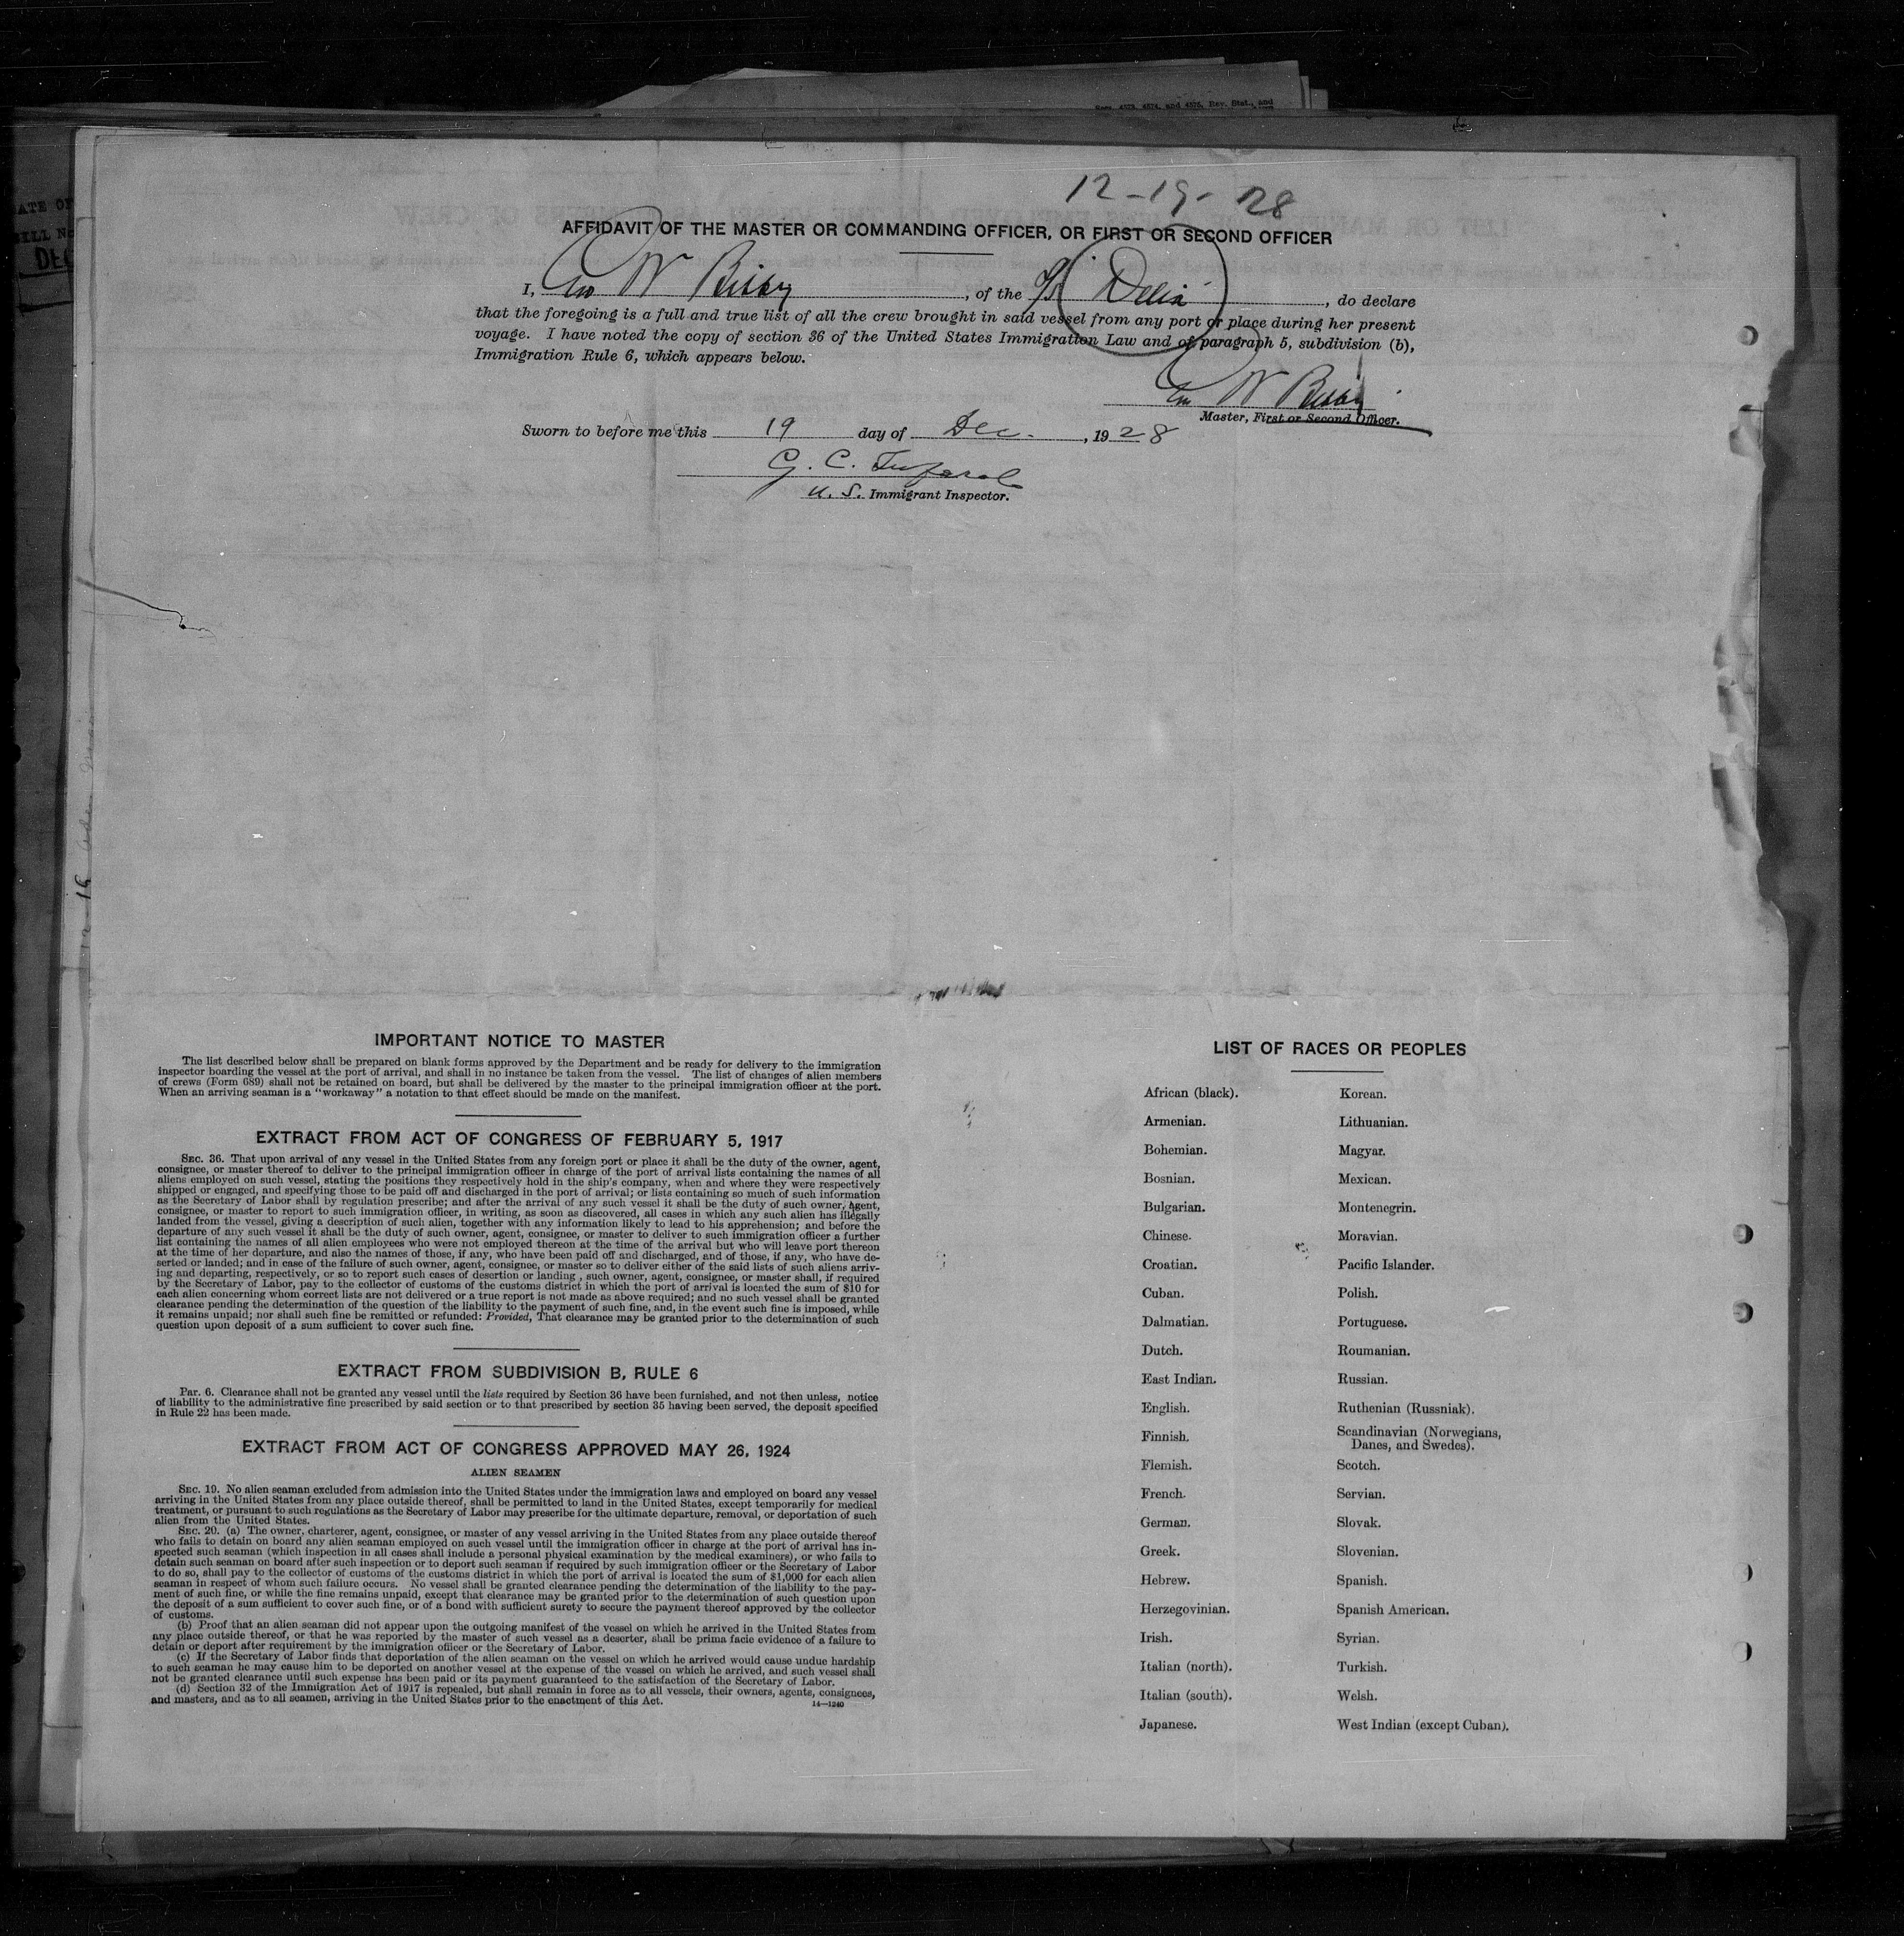 Secs. 4573, 4574, and 4576, Rev. Stat., and
12-19-28
AFFIDAVIT OF THE MASTER OR COMMANDING OFFICER, OR FIRST OR SECOND OFFICER
I, W , of the Delia , do declare
that the foregoing is a full and true list of all the crew brought in said vessel from any port or place during her present
voyage. I have noted the copy of section 36 of the United States Immigration Law and of paragraph 5, subdivision (b),
Immigration Rule 6, which appears below.
W
Master, First or Second Officer.
Sworn to before me this 19 day of Dec. , 1928
G. C.
U. S. Immigrant Inspector.
DATE OF
BILL No
DEC
IMPORTANT NOTICE TO MASTER
The list described below shall be prepared on blank forms approved by the Department and be ready for delivery to the immigration
inspector boarding the vessel at the port of arrival, and shall in no instance be taken from the vessel. The list of changes of alien members
of crews (Form 689) shall not be retained on board, but shall be delivered by the master to the principal immigration officer at the port.
When an arriving seaman is a "workaway" a notation to that effect should be made on the manifest.
EXTRACT FROM ACT OF CONGRESS OF FEBRUARY 5, 1917
SEC. 36. That upon arrival of any vessel in the United States from any foreign port or place it shall be the duty of the owner, agent,
consignee, or master thereof to deliver to the principal immigration officer in charge of the port of arrival lists containing the names of all
aliens employed on such vessel, stating the positions they respectively hold in the ship's company, when and where they were respectively
shipped or engaged, and specifying those to be paid off and discharged in the port of arrival; or lists containing so much of such information
as the Secretary of Labor shall by regulation prescribe; and after the arrival of any such vessel it shall be the duty of such owner, agent,
consignee, or master to report to such immigration officer, in writing, as soon as discovered, all cases in which any such alien has illegally
landed from the vessel, giving a description of such alien, together with any information likely to lead to his apprehension; and before the
departure of any such vessel it shall be the duty of such owner, agent, consignee, or master to deliver to such immigration officer a further
list containing the names of all alien employees who were not employed thereon at the time of the arrival but who will leave port thereon
at the time of her departure, and also the names of those, if any, who have been paid off and discharged, and of those, if any, who have de-
serted or landed; and in case of the failure of such owner, agent, consignee, or master so to deliver either of the said lists of such aliens arriv-
ing and departing, respectively, or so to report such cases of desertion or landing , such owner, agent, consignee, or master shall, if required
by the Secretary of Labor, pay to the collector of customs of the customs district in which the port of arrival is located the sum of $10 for
each alien concerning whom correct lists are not delivered or a true report is not made as above required; and no such vessel shall be granted
clearance pending the determination of the question of the liability to the payment of such fine, and, in the event such fine is imposed, while
it remains unpaid; nor shall such fine be remitted or refunded: Provided, That clearance may be granted prior to the determination of such
question upon deposit of a sum sufficient to cover such fine.
EXTRACT FROM SUBDIVISION B, RULE 6
PAR. 6. Clearance shall not be granted any vessel until the lists required by Section 36 have been furnished, and not then unless, notice
of liability to the administrative fine prescribed by said section or to that prescribed by section 35 having been served, the deposit specified
in Rule 22 has been made.
EXTRACT FROM ACT OF CONGRESS APPROVED MAY 26, 1924
ALIEN SEAMEN
SEC. 19. No alien seaman excluded from admission into the United States under the immigration laws and employed on board any vessel
arriving in the United States from any place outside thereof, shall be permitted to land in the United States, except temporarily for medical
treatment, or pursuant to such regulations as the Secretary of Labor may prescribe for the ultimate departure, removal, or deportation of such
alien from the United States.
SEC. 20. (a) The owner, charterer, agent, consignee, or master of any vessel arriving in the United States from any place outside thereof
who fails to detain on board any alien seaman employed on such vessel until the immigration officer in charge at the port of arrival has in-
spected such seaman (which inspection in all cases shall include a personal physical examination by the medical examiners), or who fails to
detain such seaman on board after such inspection or to deport such seaman if required by such immigration officer or the Secretary of Labor
to do so, shall pay to the collector of customs of the customs district in which the port of arrival is located the sum of $1,000 for each alien
seaman in respect of whom such failure occurs. No vessel shall be granted clearance pending the determination of the liability to the pay-
ment of such fine, or while the fine remains unpaid, except that clearance may be granted prior to the determination of such question upon
the deposit of a sum sufficient to cover such fine, or of a bond with sufficient surety to secure the payment thereof approved by the collector
of customs.
(b) Proof that an alien seaman did not appear upon the outgoing manifest of the vessel on which he arrived in the United States from
any place outside thereof, or that he was reported by the master of such vessel as a deserter, shall be prima facie evidence of a failure to
detain or deport after requirement by the immigration officer or the Secretary of Labor.
(c) If the Secretary of Labor finds that deportation of the alien seaman on the vessel on which he arrived would cause undue hardship
to such seaman he may cause him to be deported on another vessel at the expense of the vessel on which he arrived, and such vessel shall
not be granted clearance until such expense has been paid or its payment guaranteed to the satisfaction of the Secretary of Labor.
(d) Section 32 of the Immigration Act of 1917 is repealed, but shall remain in force as to all vessels, their owners, agents, consignees,
and masters, and as to all seamen, arriving in the United States prior to the enactment of this Act.
14—1240
LIST OF RACES OR PEOPLES
African (black).
Armenian.
Bohemian.
Bosnian.
Bulgarian.
Chinese.
Croatian.
Cuban.
Dalmatian.
Dutch.
East Indian.
English.
Finnish.
Flemish.
French.
German.
Greek.
Hebrew.
Herzegovinian.
Irish.
Italian (north).
Italian (south).
Japanese.
Korean.
Lithuanian.
Magyar.
Mexican.
Montenegrin.
Moravian.
Pacific Islander.
Polish.
Portuguese.
Roumanian.
Russian.
Ruthenian (Russniak).
Scandinavian (Norwegians,
Danes, and Swedes).
Scotch.
Servian.
Slovak.
Slovenian.
Spanish.
Spanish American.
Syrian.
Turkish.
Welsh.
West Indian (except Cuban).